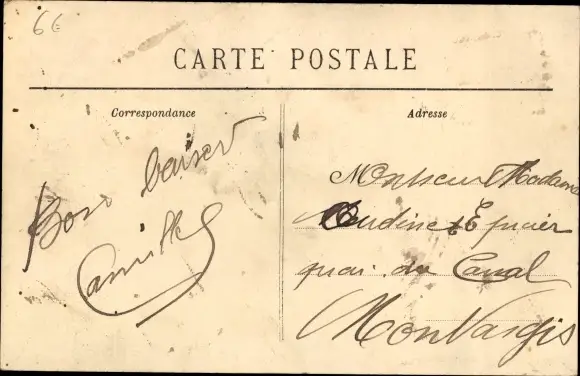 66
CARTE POSTALE
Correspondance
Adresse
Bons baiser
Camille
Monsieur Madame
Epicier
quai du Canal
Montargis